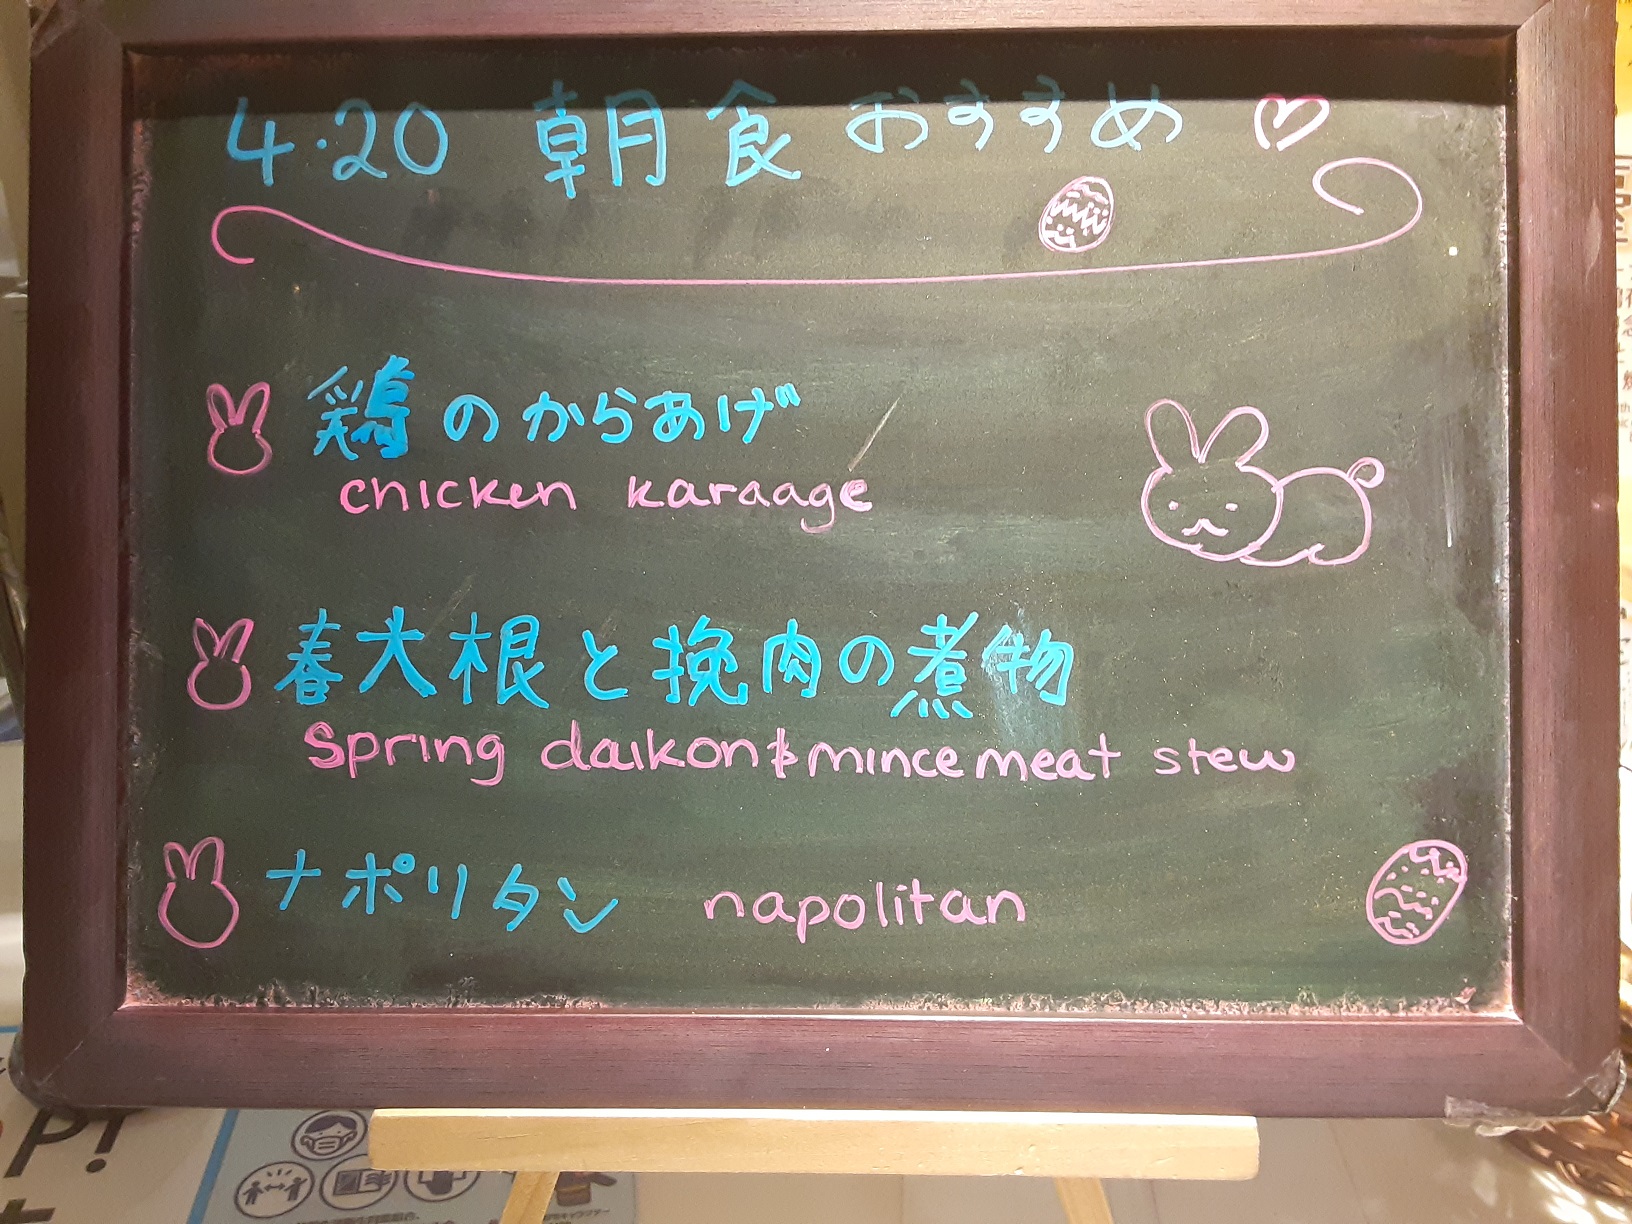 4.20 朝食 おすすめ
鶏のからあげ
chicken karaage
春大根と挽肉の煮物
spring daikon & mince meat stew
ナポリタン napolitan
P!